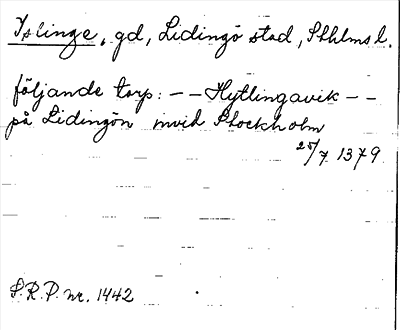 Yslinge, gd, Lidingö stad, Sthlms l.
följande torp: -- Hytlingavik --
på Lidingön invid Stockholm
25/7 1379.
S.R.P. nr. 1442